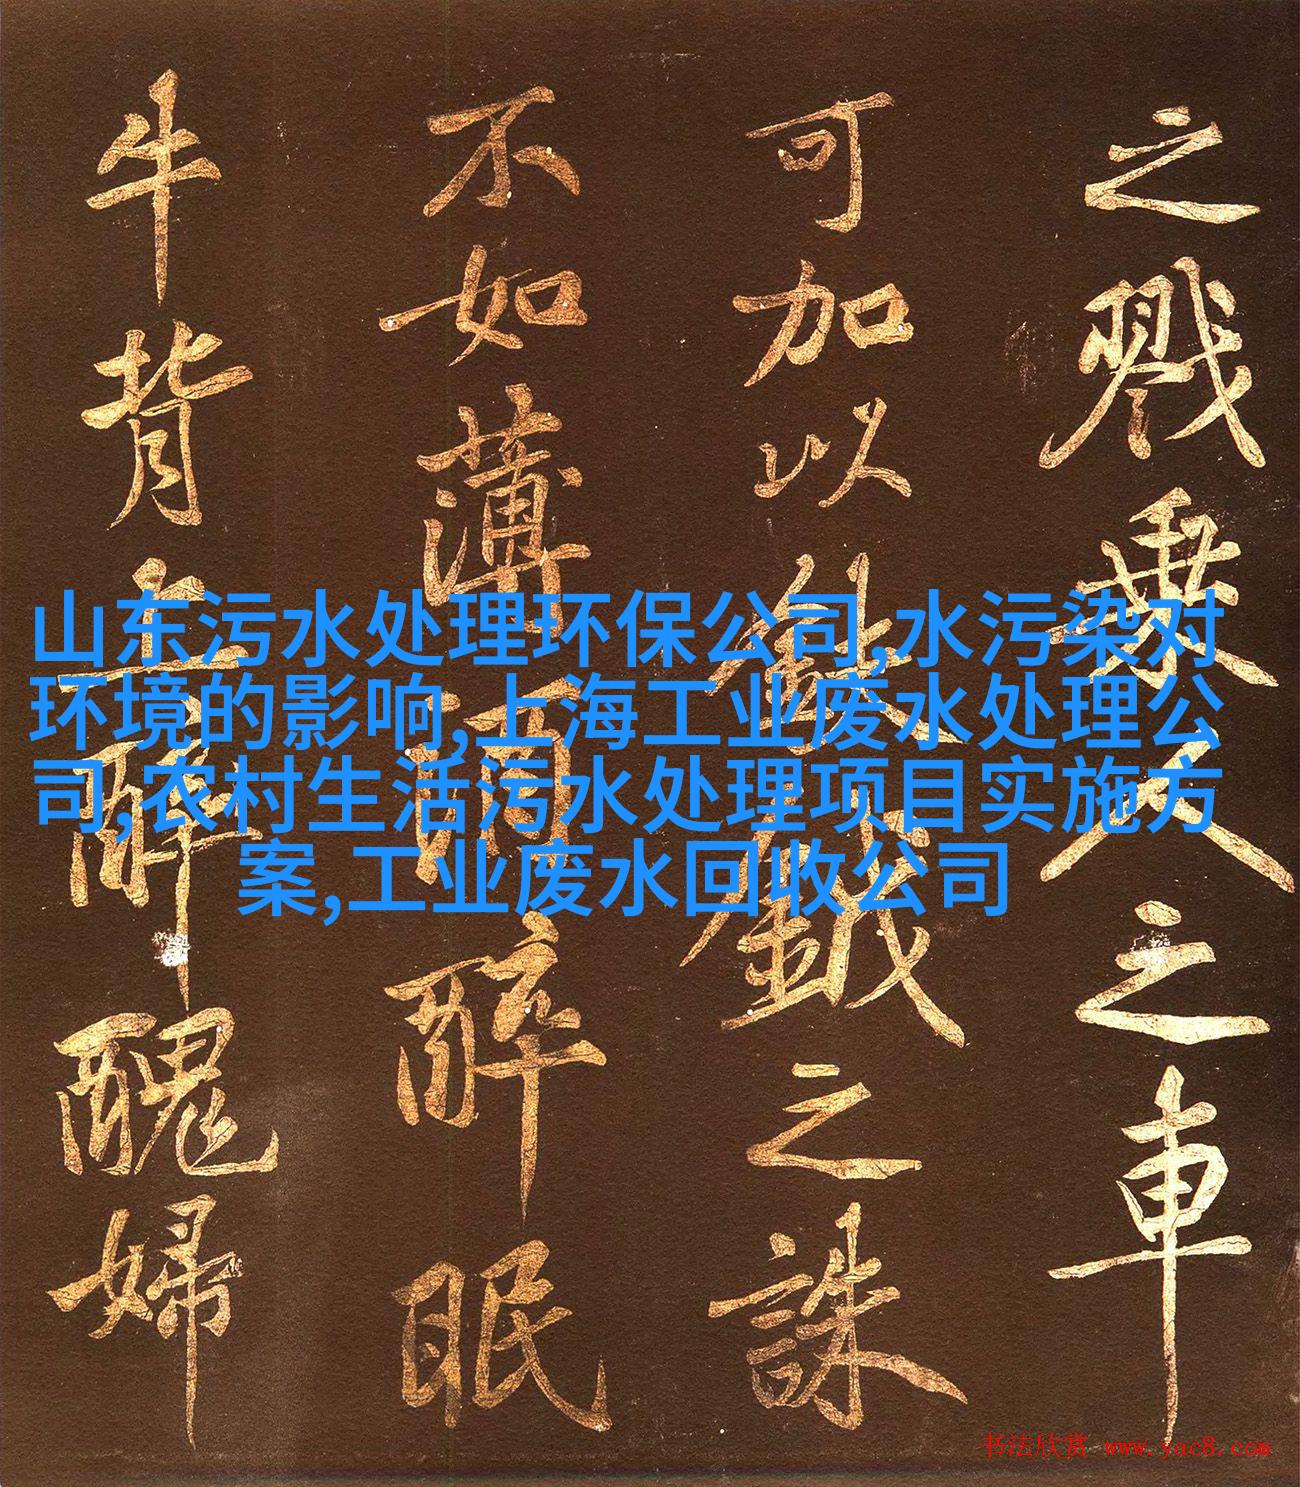 之戮乘人之車
可加以鈇鉞之誅
不如薄酒醉眠
牛背上醉醜婦
山东污水处理环保公司,水污染对
环境的影响,上海工业废水处理公
司,农村生活污水处理项目实施方
案,工业废水回收公司
书法欣赏 www.yac8.com